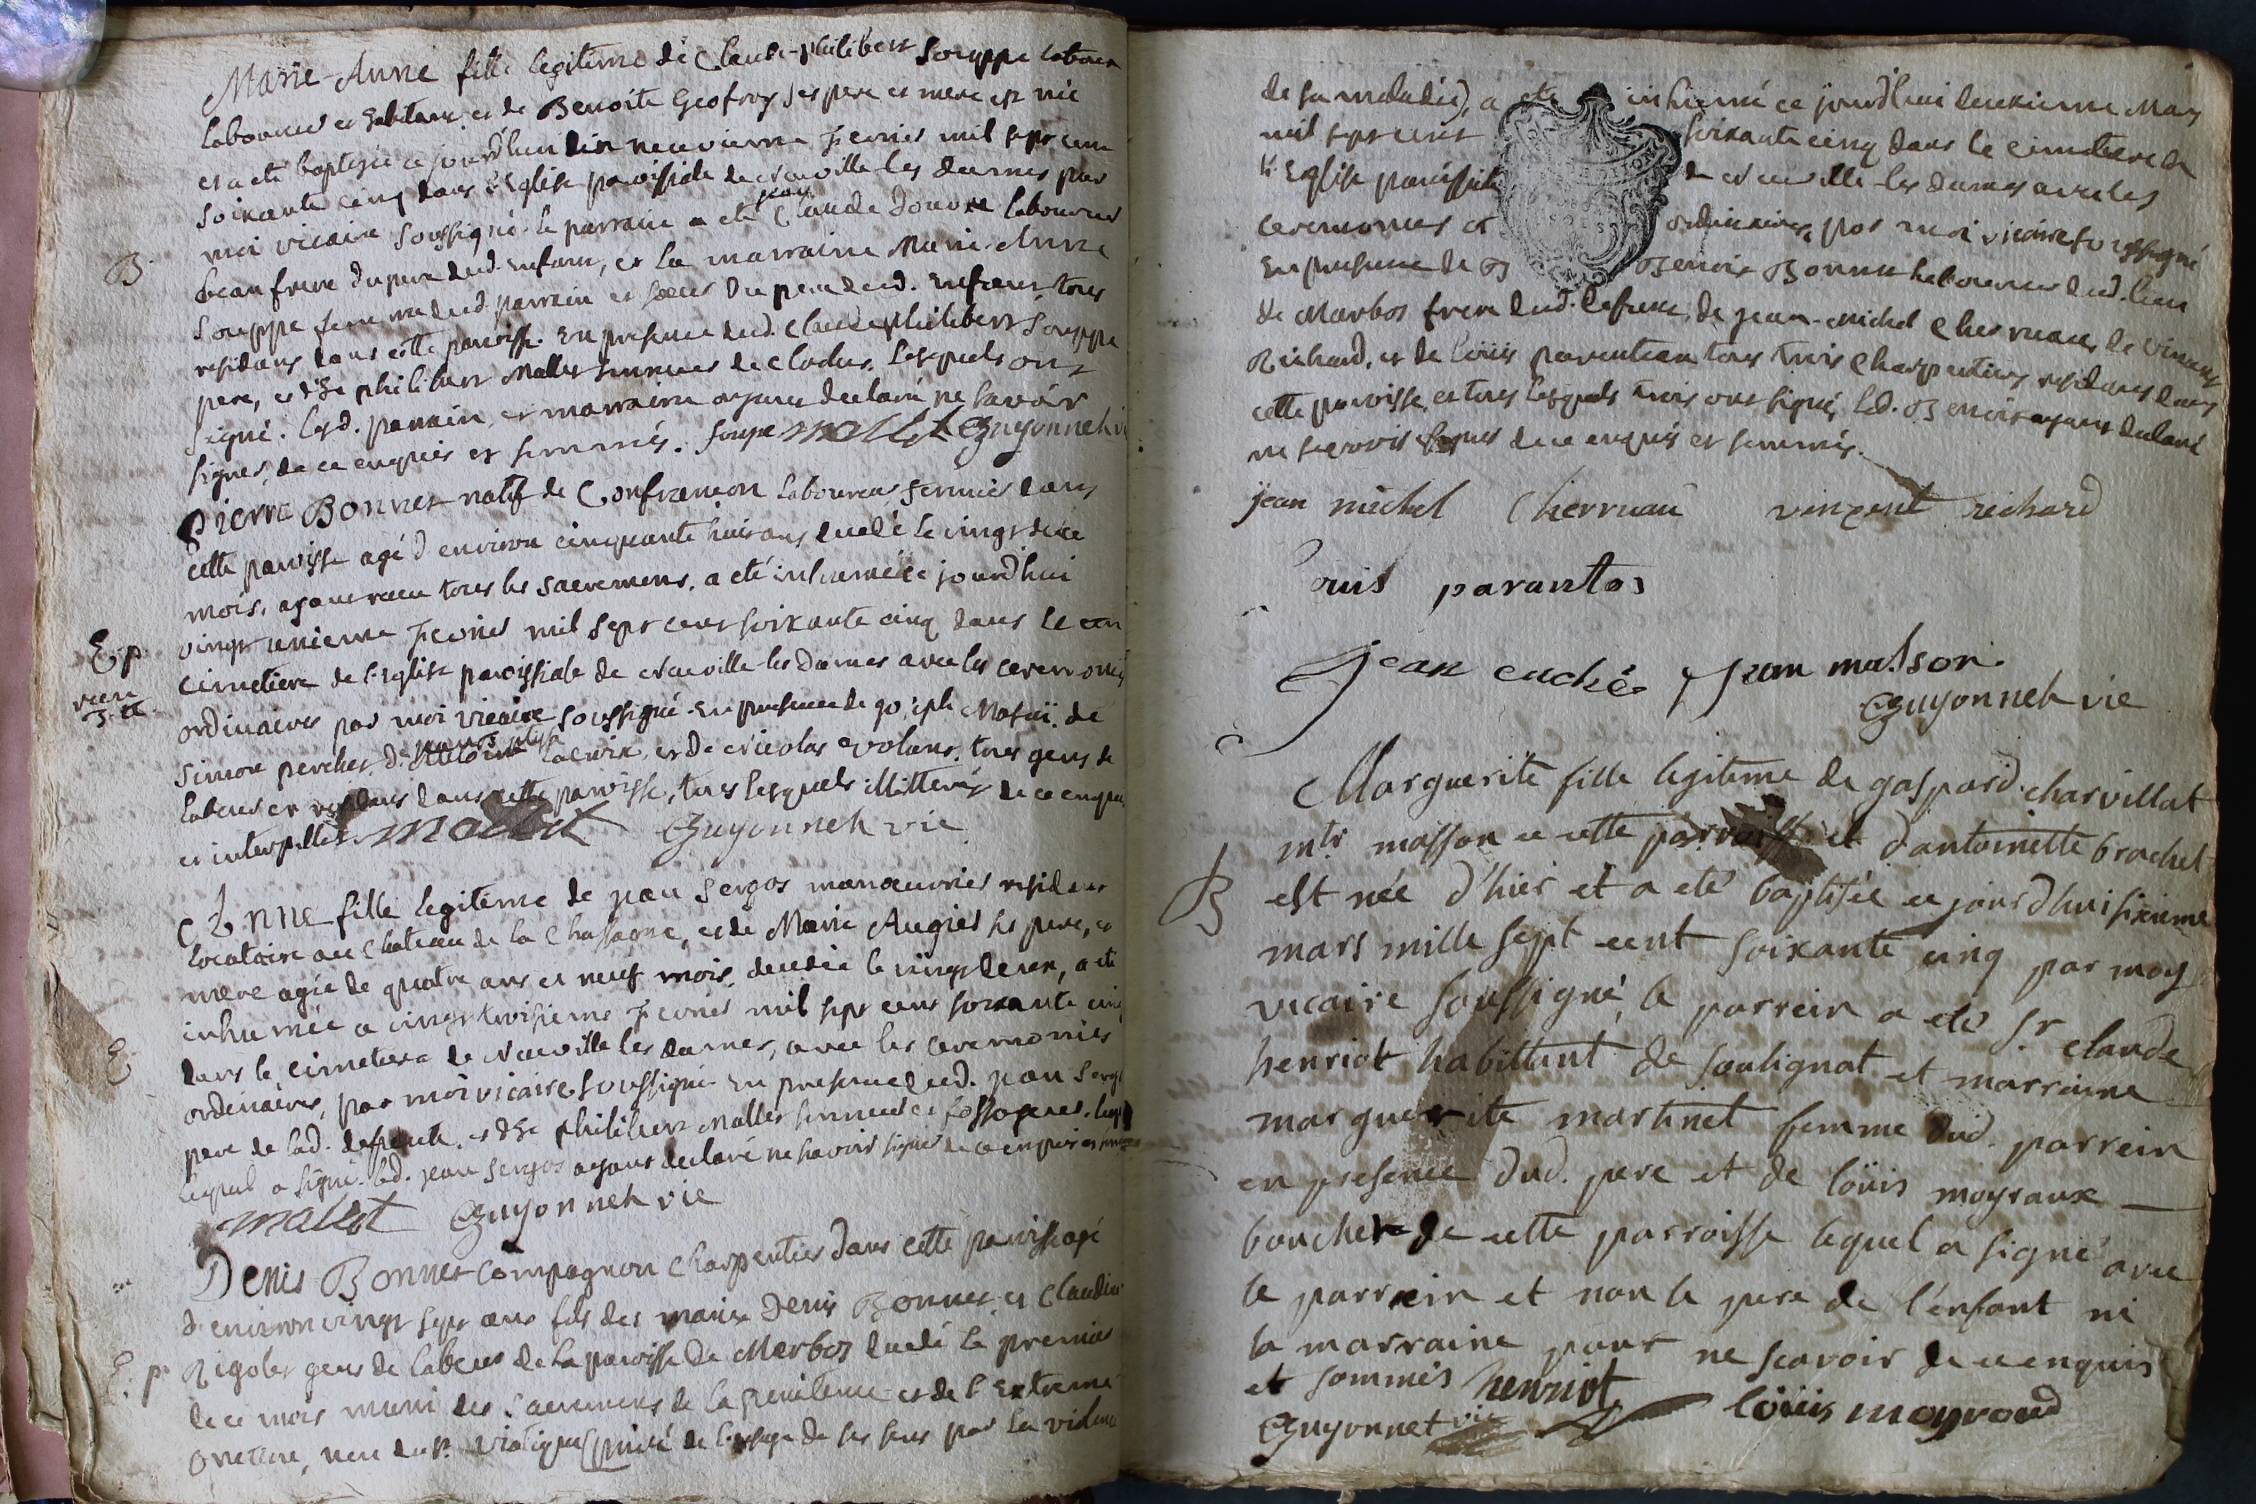 Marie-Anne fille legitime de Claude-philibert Souppe laboureur
laboureur et habitant, et de Benoite Geofroy ses pere et mere est née
et a eté baptisée ce jourd'hui dix neuvieme fevrier mil sept cent
soixante cinq dans l'Eglise paroissiale de Neuville-les dames par
moi vicaire soussigné. le parrain a eté jean Claude Douvre laboureur
B
beaufrere du pere dud. Enfant, et la marraine Marie-Anne
Souppe femme dud. parrain et soeur du pere dud. enfant, tous
residans dans cette paroisse. En presence dud. Claude philibert Souppe
pere, et de philibert Mallet sonneur de cloches. Lesquels ont
signé. lesd. parrain, et marraine ayant declaré ne savoir
signer, de ce enquis et sommés. soupe mallet Guyonneh vi
Pierre Bonnet natif de Confrançon laboureur fermier dans
cette paroisse agé d'environ cinquante huit ans decedé le vingt de ce
mois, ayant recu tous les sacremens. a eté inhumé ce jourd'hui
E. p.
vingt unieme fevrier mil sept cent soixante cinq dans le
cimetiere de l'Eglise paroissiale de Neuville-les Dames avec les ceremonies
ordinaires par moi vicaire soussigné. En presence de joseph de
simon percher, de lacroix, et de Nicolas volant, tous gens de
labeur et residans dans cette paroisse, tous lesquels illitterés de ce enquis
et interpellés. mallet Guyonneh vie
Anne fille legitime de jean Sergos manoeuvrier residant
locataire au chateau de la Chassagne, et de Marie Augier ses pere, et
mere agée de quatre ans et neuf mois, decedée le vingt deux, a eté
inhumée ce vingt troisieme fevrier mil sept cent soixante cinq
E.
dans le cimetiere de Neuville les dames, avec les ceremonies
ordinaires, par moi vicaire soussigné. En presence dud. jean Sergos
pere de lad. defunte, et de philibert Mallet sonneur et fossoyeur.
lequel a signé. led. jean Sergos ayant declaré ne savoir signer de ce enquis et sommé
mallet Guyonneh vie
Denis Bonnet compagnon charpentier dans cette paroisse agé
d'environ vingt sept ans fils des mariés Denis Bonnet, et Claudine
E. p.
Rigolet gens de labeur de la paroisse de Marboz decedé le premier
de ce mois muni des sacremens de la penitence et de l'Extreme
onction, non du st. viatique (privé de l'usage de ses sens par la violence
de sa maladie), a eté inhumé ce jourd'hui deuxieme Mars
mil sept cent soixante cinq dans le cimetiere de
l'Eglise paroissiale de Neuville-les dames avec les
ceremonies et ordinaires, par moi vicaire soussigné
En presence de Benoit Bonnet laboureur dud. lieu
de Marbos frere dud. defunt, de jean-michel Chernau, de vincent
Richard, et de Loüis tous trois charpentiers residans dans
cette paroisse, et tous lesquels trois ont signé, led. Benoit ayant declaré
ne scavoir signer de ce enquis et sommés.
jean michel Chernau vinzent richard
Louis parantos
jean cuché jean masson
Guyonneh vie
Marguerite fille legitime de gaspard charvillat
mtr masson de cette parroisse et d'antoinette brachet
B
est née d'hier et a eté baptisée ce jourd'hui sixieme
mars mille sept cent soixante cinq par moy
vicaire soussigné, le parrein a eté Sr claude
henriot habittant de soulignat et marraine
marguerite martinet femme dud. parrein
en presence dud. pere et de loüis moyraux
boucher de cette parroisse lequel a signé avec
le parrein et non le pere de l'enfant ni
la marraine pour ne scavoir de ce enquis
et sommés henriot
Guyonnet vie loüis moyroud